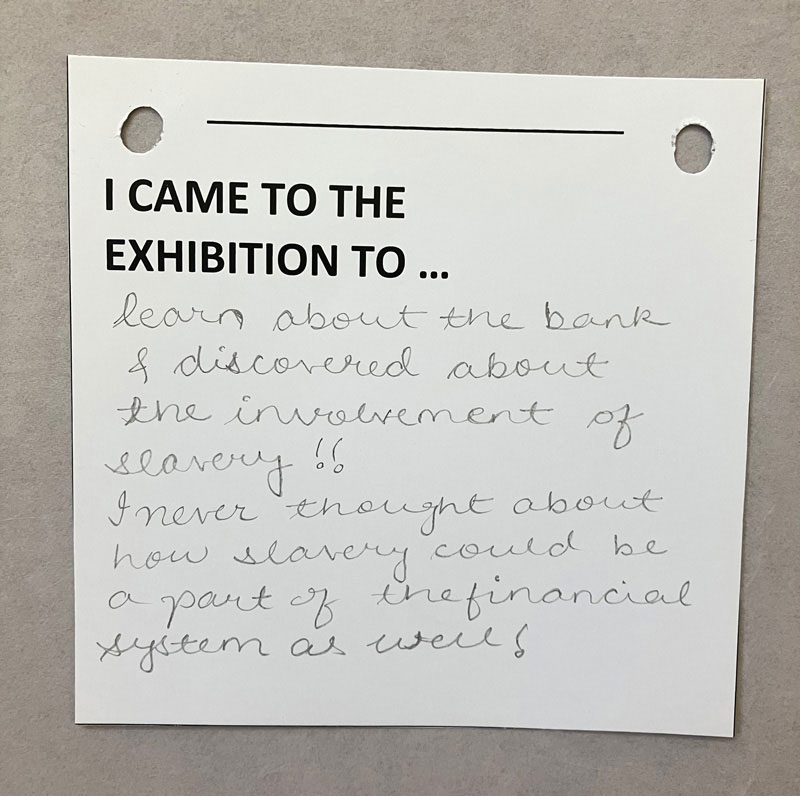 I CAME TO THE
EXHIBITION TO ...
learn about the bank
& discovered about
the involvement of
slavery !!
I never thought about
how slavery could be
a part of the financial
system as well!